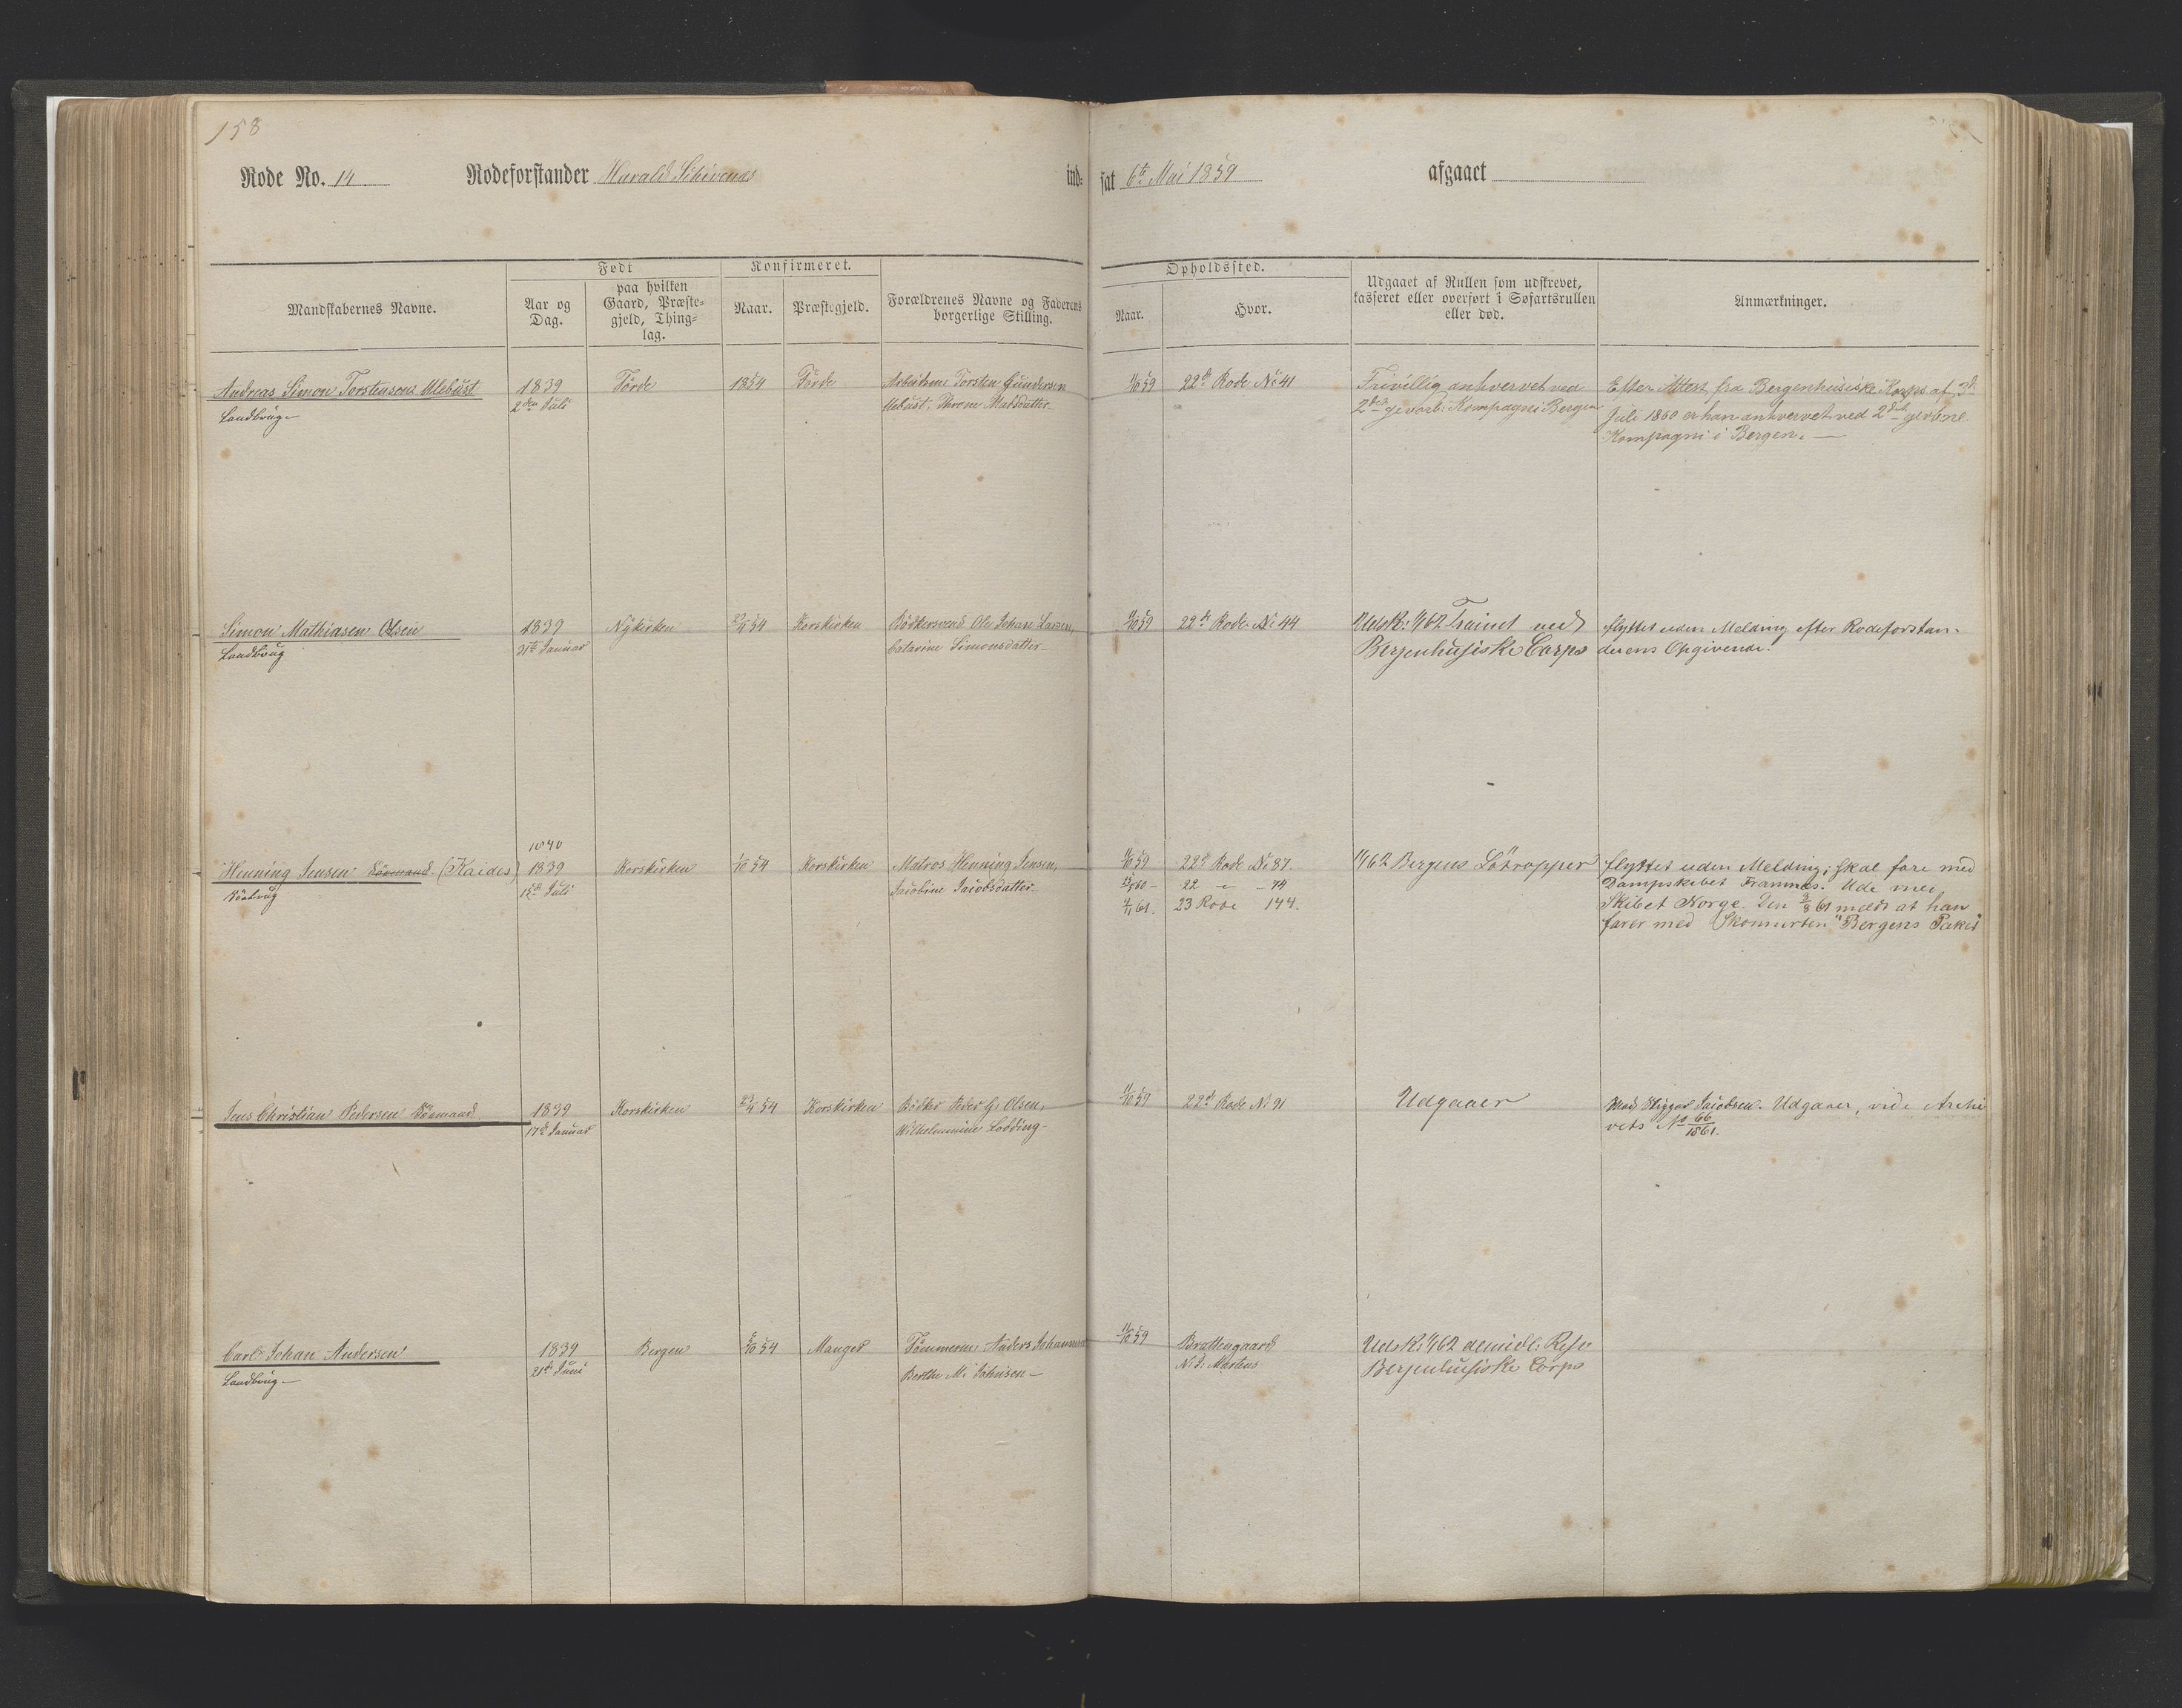 158
Rode No. 14 Rodeforstander Harald ind-
sat 6te Mai 1859 afgaaet
Mandskabernes Navne.
Født
Aar og Dag.
paa hvilken Gaard, Præste-gjeld, Thing-lag.
Konfirmeret.
Naar.
Præstegjeld.
Forældrenes Navne og Faderens borgerlige Stilling.
Opholdssted.
Naar.
Hvor.
Udgaaet af Rullen som udskrevet, kasseret eller overført i Søfartsrullen eller død.
Anmærkninger.
Andreas Simon Torstensens Mebust
Landbrug
1839
2den Juli
Förde
1854
Förde
Arbeidsm Torsten Gundersen
Mebust, Madsdatter
11/10 59
22de Rode No 41
Frivillig anhvervet ved
2det gevorb: Kompagni Bergen
Efter Attest fra Bergenhusiske Korps af 3d
Juli 1860 er han anhvervet ved 2det gevbne
Kompagni i Bergen.
Simon Mathiasen Olsen
Landbrug
1839
31te Januar
Nykirken
23/4 54
Korskirken
Bödkersvend Ole Johan Larsen,
Catarine Simonsdatter
11/10 59
22de Rode No 44
Udsk: 1/1 62 Trainet ved
Bergenhusiske Corps
flyttet uden Melding efter Rodeforstan-
derens Opgivende.
Henning Jensen Sömand (Kaides)
1840
1839
15de Juli
Korskirken
1/10 54
Korskirken
Matros Henning Jensen,
Jacobine Jacobsdatter
11/10 59
22de Rode No 87.
60 22 - 74
2/11 61. 23 Rode 144.
1/1 62 Bergens Sötropper
flyttet uden Melding; skal fare med
Dampskibet Framnæs. Ude med
Skibet Norge. Den 3/8 61 meldt at han
farer med Skonnerten "Bergens Paket"
Jens Christian Pedersen Sömand
1839
17de Januar
Korskirken
23/4 54
Korskirken
Bödker Peder G. Olsen,
Wilhelmmine Lodding
11/10 59
22de Rode No 91
Udgaaer
Mad. Jacobsen. Udgaaer, vide Archi
vets No 66/1861.
Carl Johan Andersen
Landbrug
1839
21de Juni
Bergen
54
Manger
Tömmerm. Anders Johannesen
Berthe M. Johnsen
11/10 59
Brattengaard
N. J. Martens
Udsk: 1/1 62
Bergenhusiske Corps